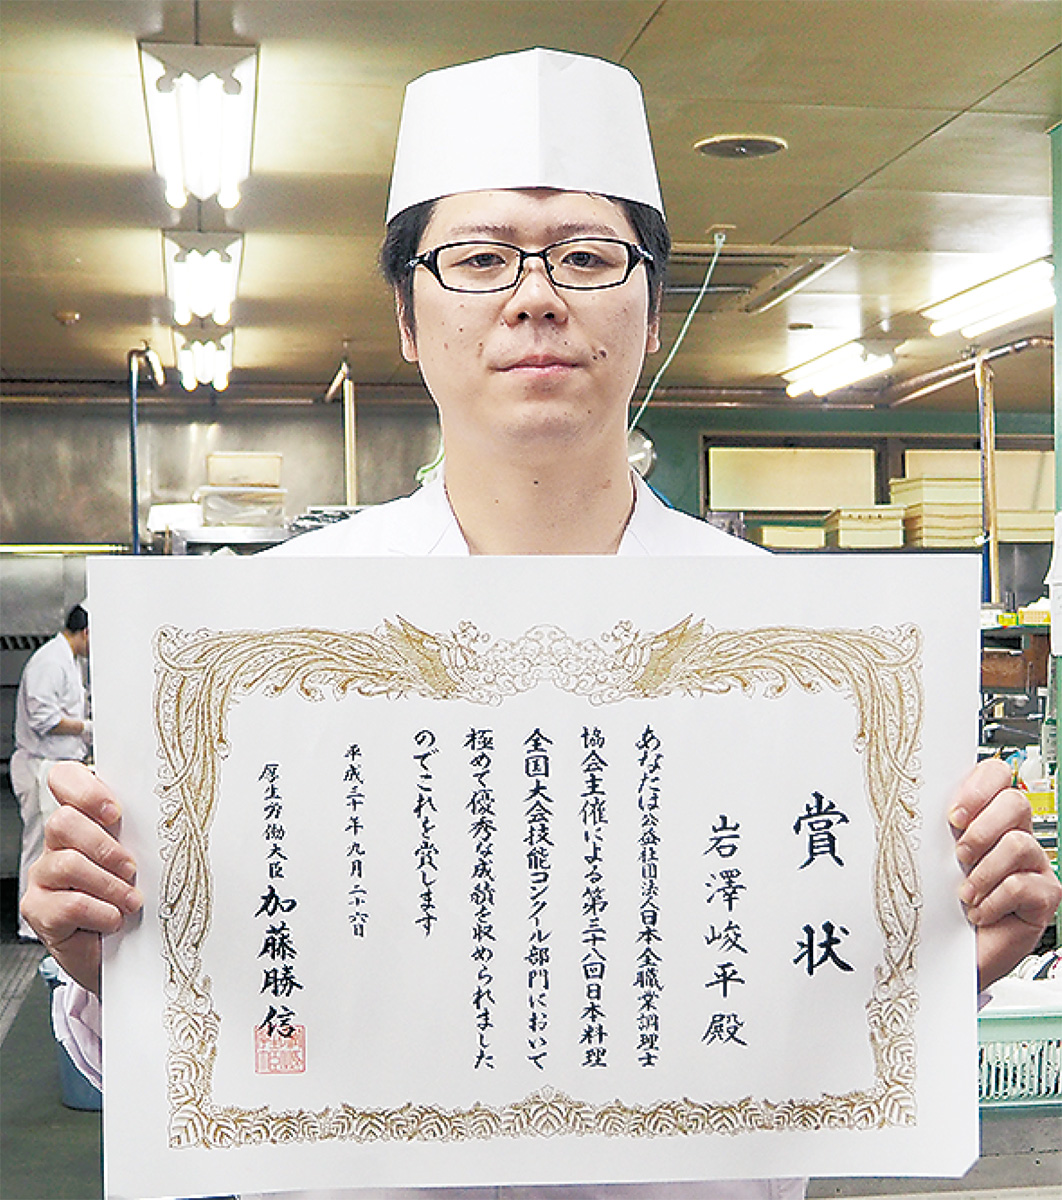 賞状
岩澤峻平殿
あなたは公益社団法人日本全職業調理士
協会主催による第三十八回日本料理
全国大会技能コンクール部門において
極めて優秀な成績を収められました
のでこれを賞します
平成三十年九月二十六日
厚生労働大臣 加藤勝信